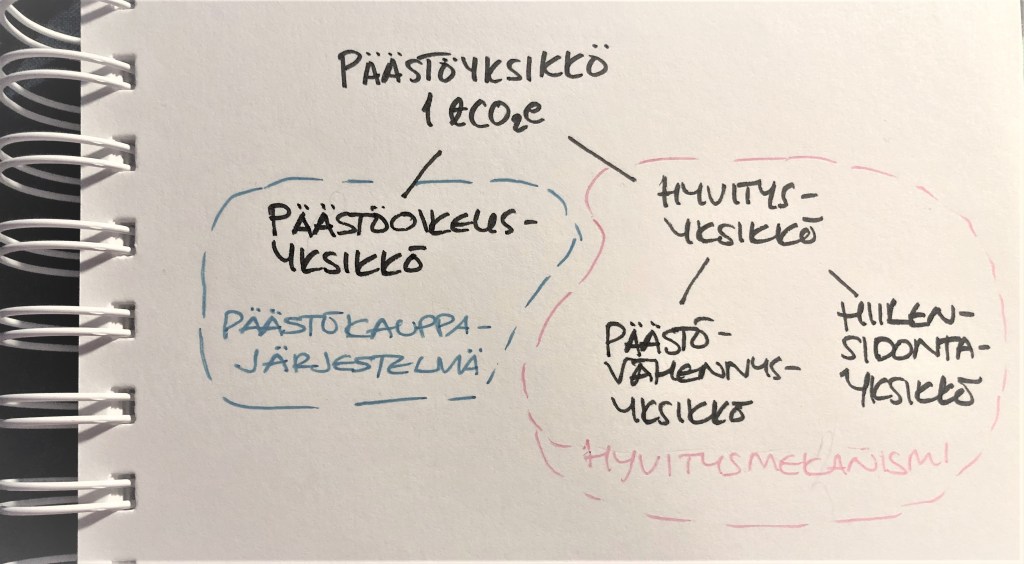 PÄÄSTÖYKSIKKÖ
1 tCO₂e
PÄÄSTÖOIKEUS-
YKSIKKÖ
PÄÄSTÖKAUPPA-
JÄRJESTELMÄ
HYVITYS-
YKSIKKÖ
PÄÄSTÖ-
VÄHENNYS-
YKSIKKÖ
HIILEN-
SIDONTA-
YKSIKKÖ
HYVITYSMEKANISMI